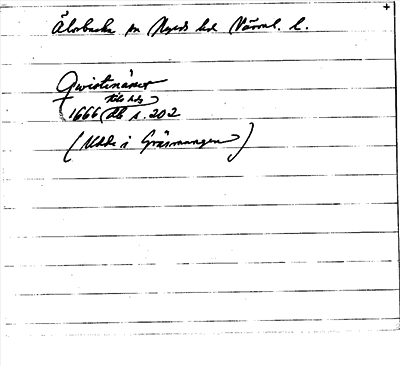 Älvsbacka sn Nyeds hd Värml. l.
Qwistenäset
Kils hds
1666 Db s. 202
(Udde i Gräsmangen)